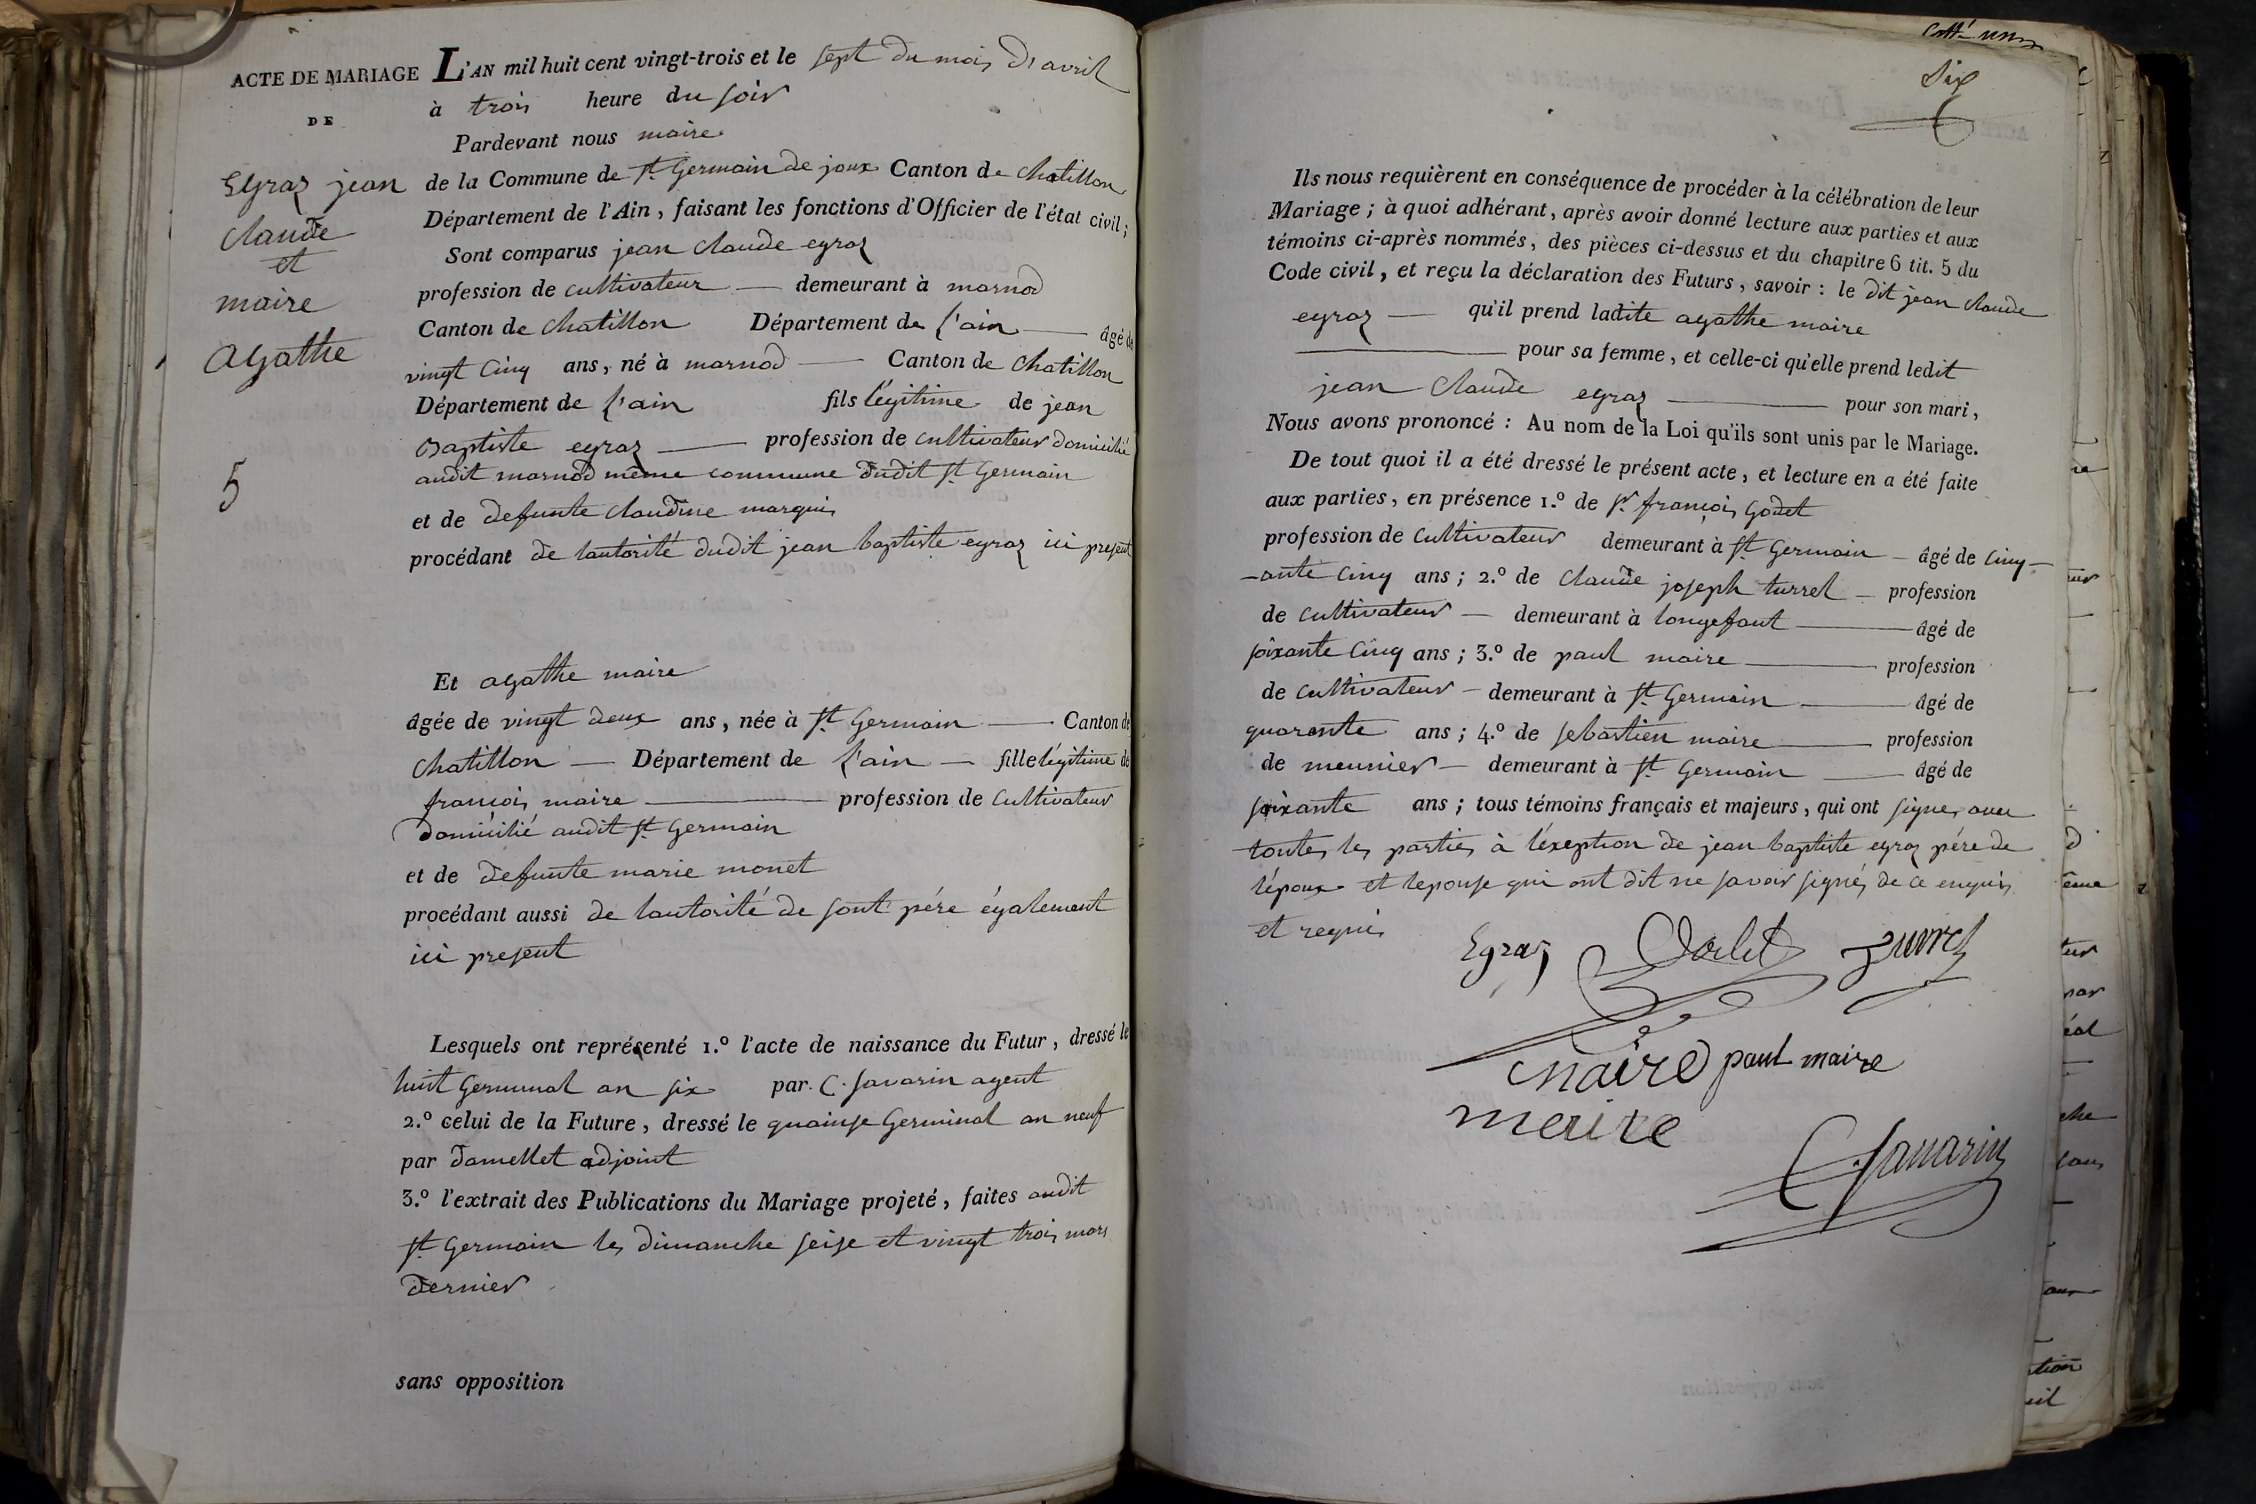 ACTE DE MARIAGE
DE
Egraz jean
claude
et
maire
agathe
5
L'AN mil huit cent vingt-trois et le sept du mois d'avril
à trois heure du soir
Pardevant nous maire
de la Commune de St Germain de joux Canton de chatillon
Département de l'Ain, faisant les fonctions d'Officier de l'état civil;
Sont comparus jean claude egraz
profession de cultivateur — demeurant à marnod
Canton de chatillon Département de l'ain — âgé de
vingt cinq ans, né à marnod — Canton de chatillon
Département de l'ain fils légitime de jean
Baptiste egraz — profession de cultivateur domicilié
audit marnod même commune dudit St Germain
et de defunte claudine marquis
procédant de lautorité dudit jean baptiste egraz ici present
Et agathe maire
âgée de vingt deux ans, née à St Germain — Canton de
chatillon — Département de l'ain — fille légitime de
françois maire — profession de cultivateur
domicilié audit St Germain
et de defunte marie monet
procédant aussi de lautorité de sont pére également
ici present
Lesquels ont représenté 1.º l'acte de naissance du Futur, dressé le
huit Germinal an six par C. Savarin agent
2.º celui de la Future, dressé le quainse Germinal an neuf
par damellet adjoint
3.º l'extrait des Publications du Mariage projeté, faites audit
St Germain les dimanche seise et vingt trois mars
dernier
sans opposition
Six
Ils nous requièrent en conséquence de procéder à la célébration de leur
Mariage; à quoi adhérant, après avoir donné lecture aux parties et aux
témoins ci-après nommés, des pièces ci-dessus et du chapitre 6 tit. 5 du
Code civil, et reçu la déclaration des Futurs, savoir: le dit jean claude
egraz — qu'il prend ladite agathe maire
— pour sa femme, et celle-ci qu'elle prend ledit
jean claude egraz — pour son mari,
Nous avons prononcé: Au nom de la Loi qu'ils sont unis par le Mariage.
De tout quoi il a été dressé le présent acte, et lecture en a été faite
aux parties, en présence 1.º de Sr françois Godet
profession de cultivateur demeurant à St Germain — âgé de cinq-
-ante cinq ans; 2.º de claude joseph turrel — profession
de cultivateur — demeurant à longefant — âgé de
soixante cinq ans; 3.º de paul maire — profession
de cultivateur — demeurant à St Germain — âgé de
quarente ans; 4.º de sebastien maire — profession
de meunier — demeurant à St Germain — âgé de
soixante ans; tous témoins français et majeurs, qui ont signer avec
toutes les parties à léxeption de jean baptiste egraz pére de
lépoux et lepouse qui ont dit ne savoir signés de ce enquis
et requis
Egraz Godet Turrel
maire paul maire
maire
C. Savarin